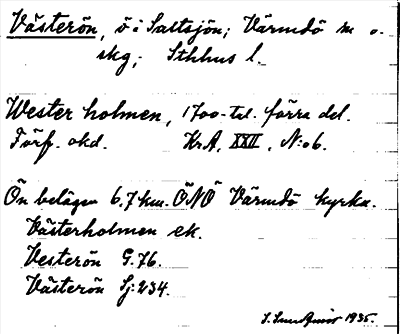 Västerön, ö i Saltsjön; Värmdö sn o.
skg; Sthlms l.
Wester holmen, 1700-tal. förra del.
Förf. okd. Kr.A. XXII, N:o 6.
Ön belägen 6,7 km. ÖNÖ Värmdö kyrka.
Västerholmen ek.
Vesterön G.76.
Västerön Sj:234.
1935.